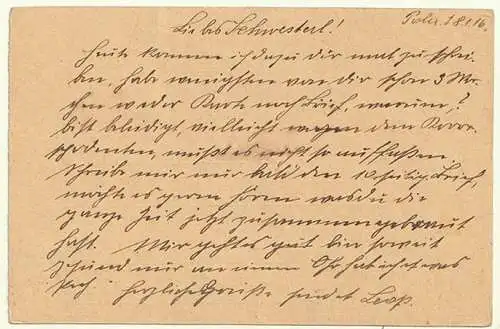 Liebes Schwesterl! Pola 18.1.16.
Heute komme ich dazu dir mal zu schrei-
ben, habe wenigsten von dir schon 3 Wo-
chen weder Karte noch Brief, warum?
bist beleidigt, vielleicht wegen dem Korres-
podenten, mußt es nicht so auffassen
schreibe mir nur bald den 10 seitig Brief,
möchte es gern hören was du die
ganze Zeit jetzt zusammengebraut
hast. Mir geht es gut bin soweit
gsund nur an einem Ohr hat ich etwas
Pech. Herzliche Grüße sendet Leop.